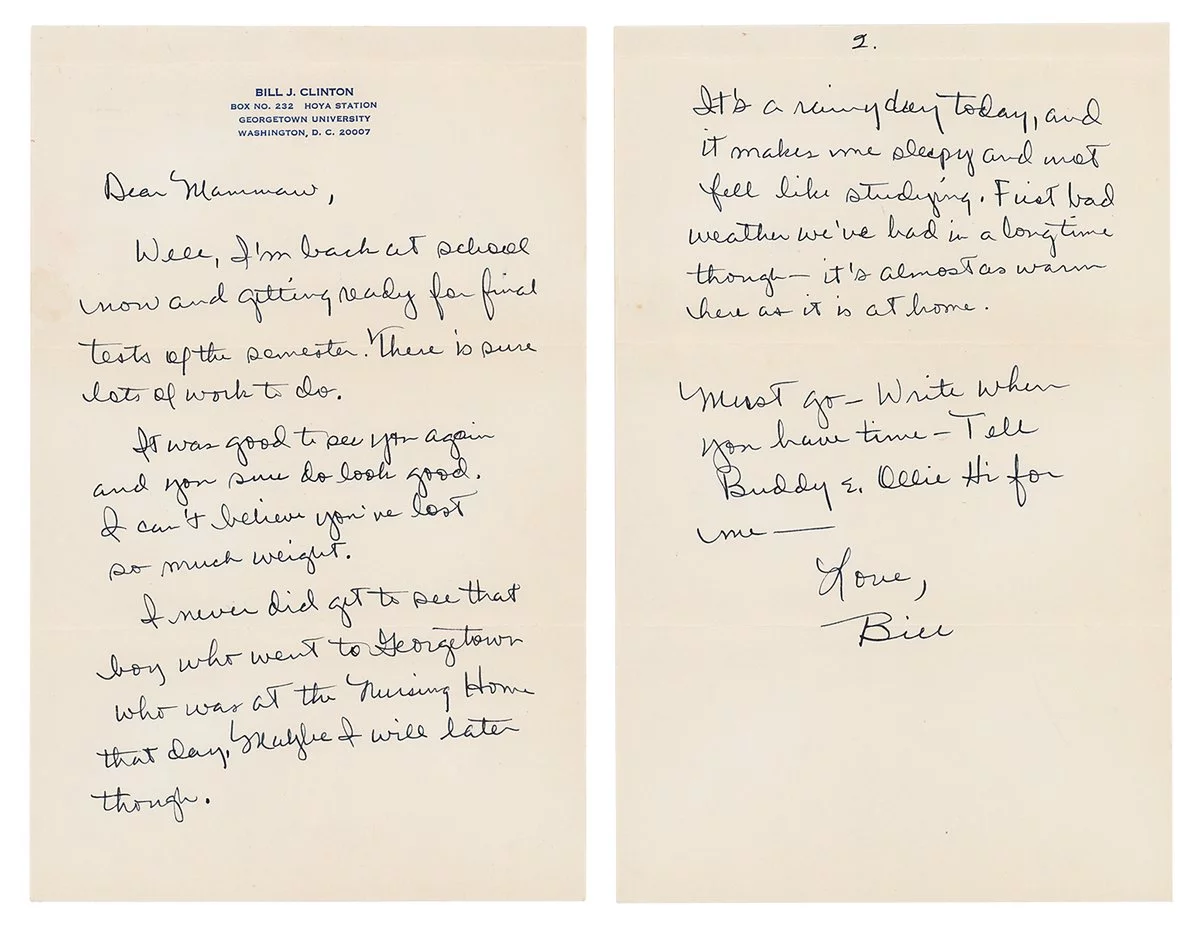 BILL J. CLINTON
BOX NO. 232 HOYA STATION
GEORGETOWN UNIVERSITY
WASHINGTON, D. C. 20007
Dear Mammaw,
Well, I'm back at school
now and getting ready for final
tests of the semester. There is sure
lots of work to do.
It was good to see you again
and you sure do look good.
I can't believe you've lost
so much weight.
I never did get to see that
boy who went to Georgetown
who was at the Nursing Home
that day. Maybe I will later
though.
2.
It's a rainy day today, and
it makes me sleepy and not
fell like studying. First bad
weather we've had in a long time
though — it's almost as warm
here as it is at home.
Must go — Write when
you have time — Tell
Buddy & Ollie Hi for
me —
Love,
Bill